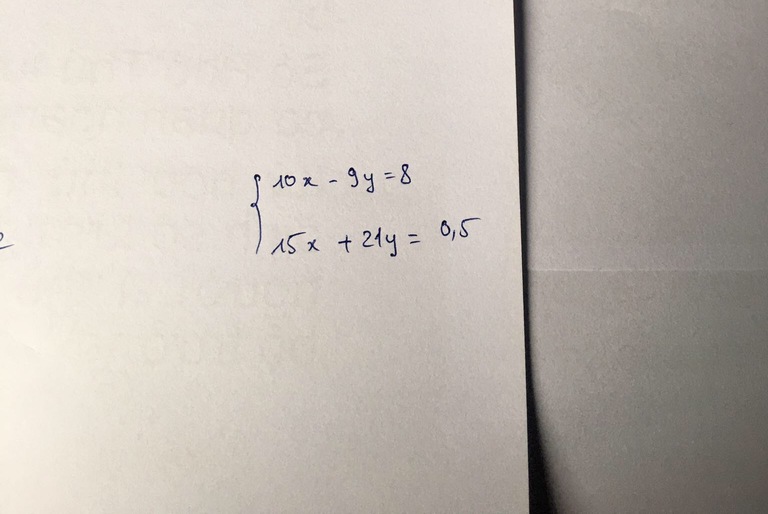 10x - 9y = 8
15x + 21y = 0,5